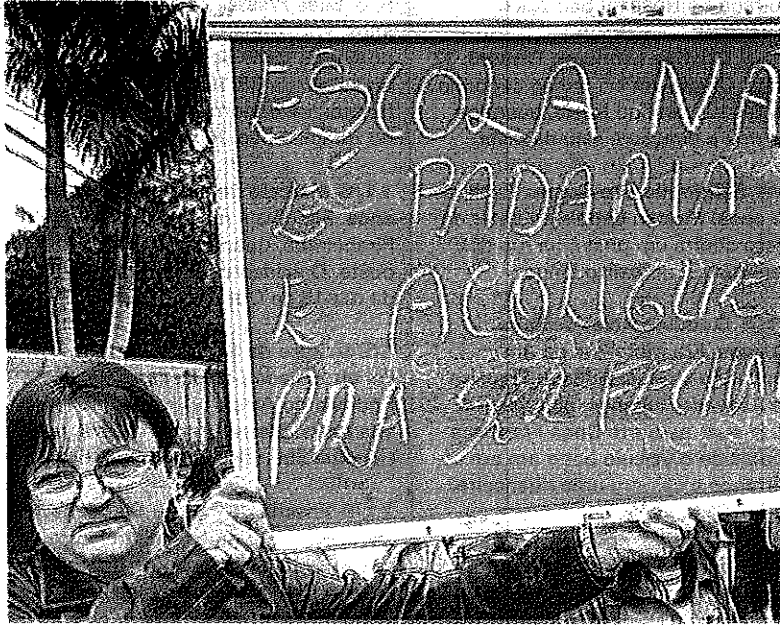 ESCOLA NA
É PADARIA
E ACOUGUE
PRA SER FECHA